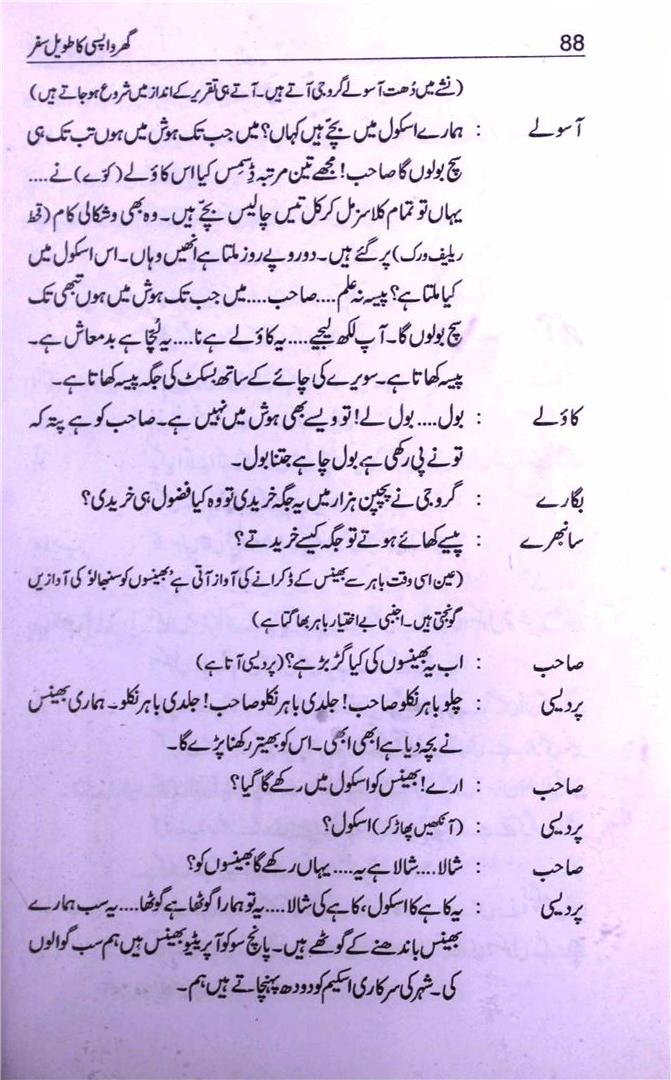 88 گھر واپسی کا طویل سفر
(نشے میں دُھت آسولے گروجی آتے ہیں۔ آتے ہی تقریر کے انداز میں شروع ہو جاتے ہیں)
آسولے : ہمارے اسکول میں بچّے ہیں کہاں؟ میں جب تک ہوش میں ہوں تب تک ہی
سچ بولوں گا صاحب! مجھے تین مرتبہ ڈِسمِس کیا اس کاؤلے (کوّے) نے....
یہاں تو تمام کلاسز مل کر کل تیس چالیس بچّے ہیں۔ وہ بھی وشکالی کام (قحط
ریلیف ورک) پر گئے ہیں۔ دو روپے روز ملتا ہے انھیں وہاں۔ اس اسکول میں
کیا ملتا ہے؟ پیسہ نہ علم.... صاحب.... میں جب تک ہوش میں ہوں تبھی تک
سچ بولوں گا۔ آپ لکھ لیجیے.... یہ کاؤلے ہے نا.... یہ لُچّا ہے بدمعاش ہے۔
پیسہ کھاتا ہے۔ سویرے کی چائے کے ساتھ بسکٹ کی جگہ پیسہ کھاتا ہے۔
کاؤلے : بول.... بول لے! تو ویسے بھی ہوش میں نہیں ہے۔ صاحب کو ہے پتہ کہ
تو نے پی رکھی ہے بول چاہے جتنا بول۔
بگارے : گروجی نے پچپن ہزار میں یہ جگہ خریدی تو وہ کیا فضول ہی خریدی؟
سانبھرے : پیسے کھائے ہوتے تو جگہ کیسے خریدتے؟
(عین اسی وقت باہر سے بھینس کے ڈکرانے کی آواز آتی ہے ’بھینسوں کو سنبھالو‘ کی آوازیں
گونجتی ہیں۔ اجنبی بے اختیار باہر بھاگتا ہے)
صاحب : اب یہ بھینسوں کی کیا گڑبڑ ہے؟ (پردیسی آتا ہے)
پردیسی : چلو باہر نکلو صاحب! جلدی باہر نکلو صاحب! جلدی باہر نکلو۔ ہماری بھینس
نے بچہ دیا ہے ابھی ابھی۔ اس کو بھیتر رکھنا پڑے گا۔
صاحب : ارے! بھینس کو اسکول میں رکھے گا گیا؟
پردیسی : (آنکھیں پھاڑ کر) اسکول؟
صاحب : شالا.... شالا ہے یہ.... یہاں رکھے گا بھینسوں کو؟
پردیسی : یہ کاہے کا اسکول، کاہے کی شالا.... یہ تو ہمارا گوٹھا ہے گوٹھا.... یہ سب ہمارے
بھینس باندھنے کے گوٹھے ہیں۔ پانچ سو کوآپریٹیو بھینس ہیں ہم سب گوالوں
کی۔ شہر کی سرکاری اسکیم کو دودھ پہنچاتے ہیں ہم۔